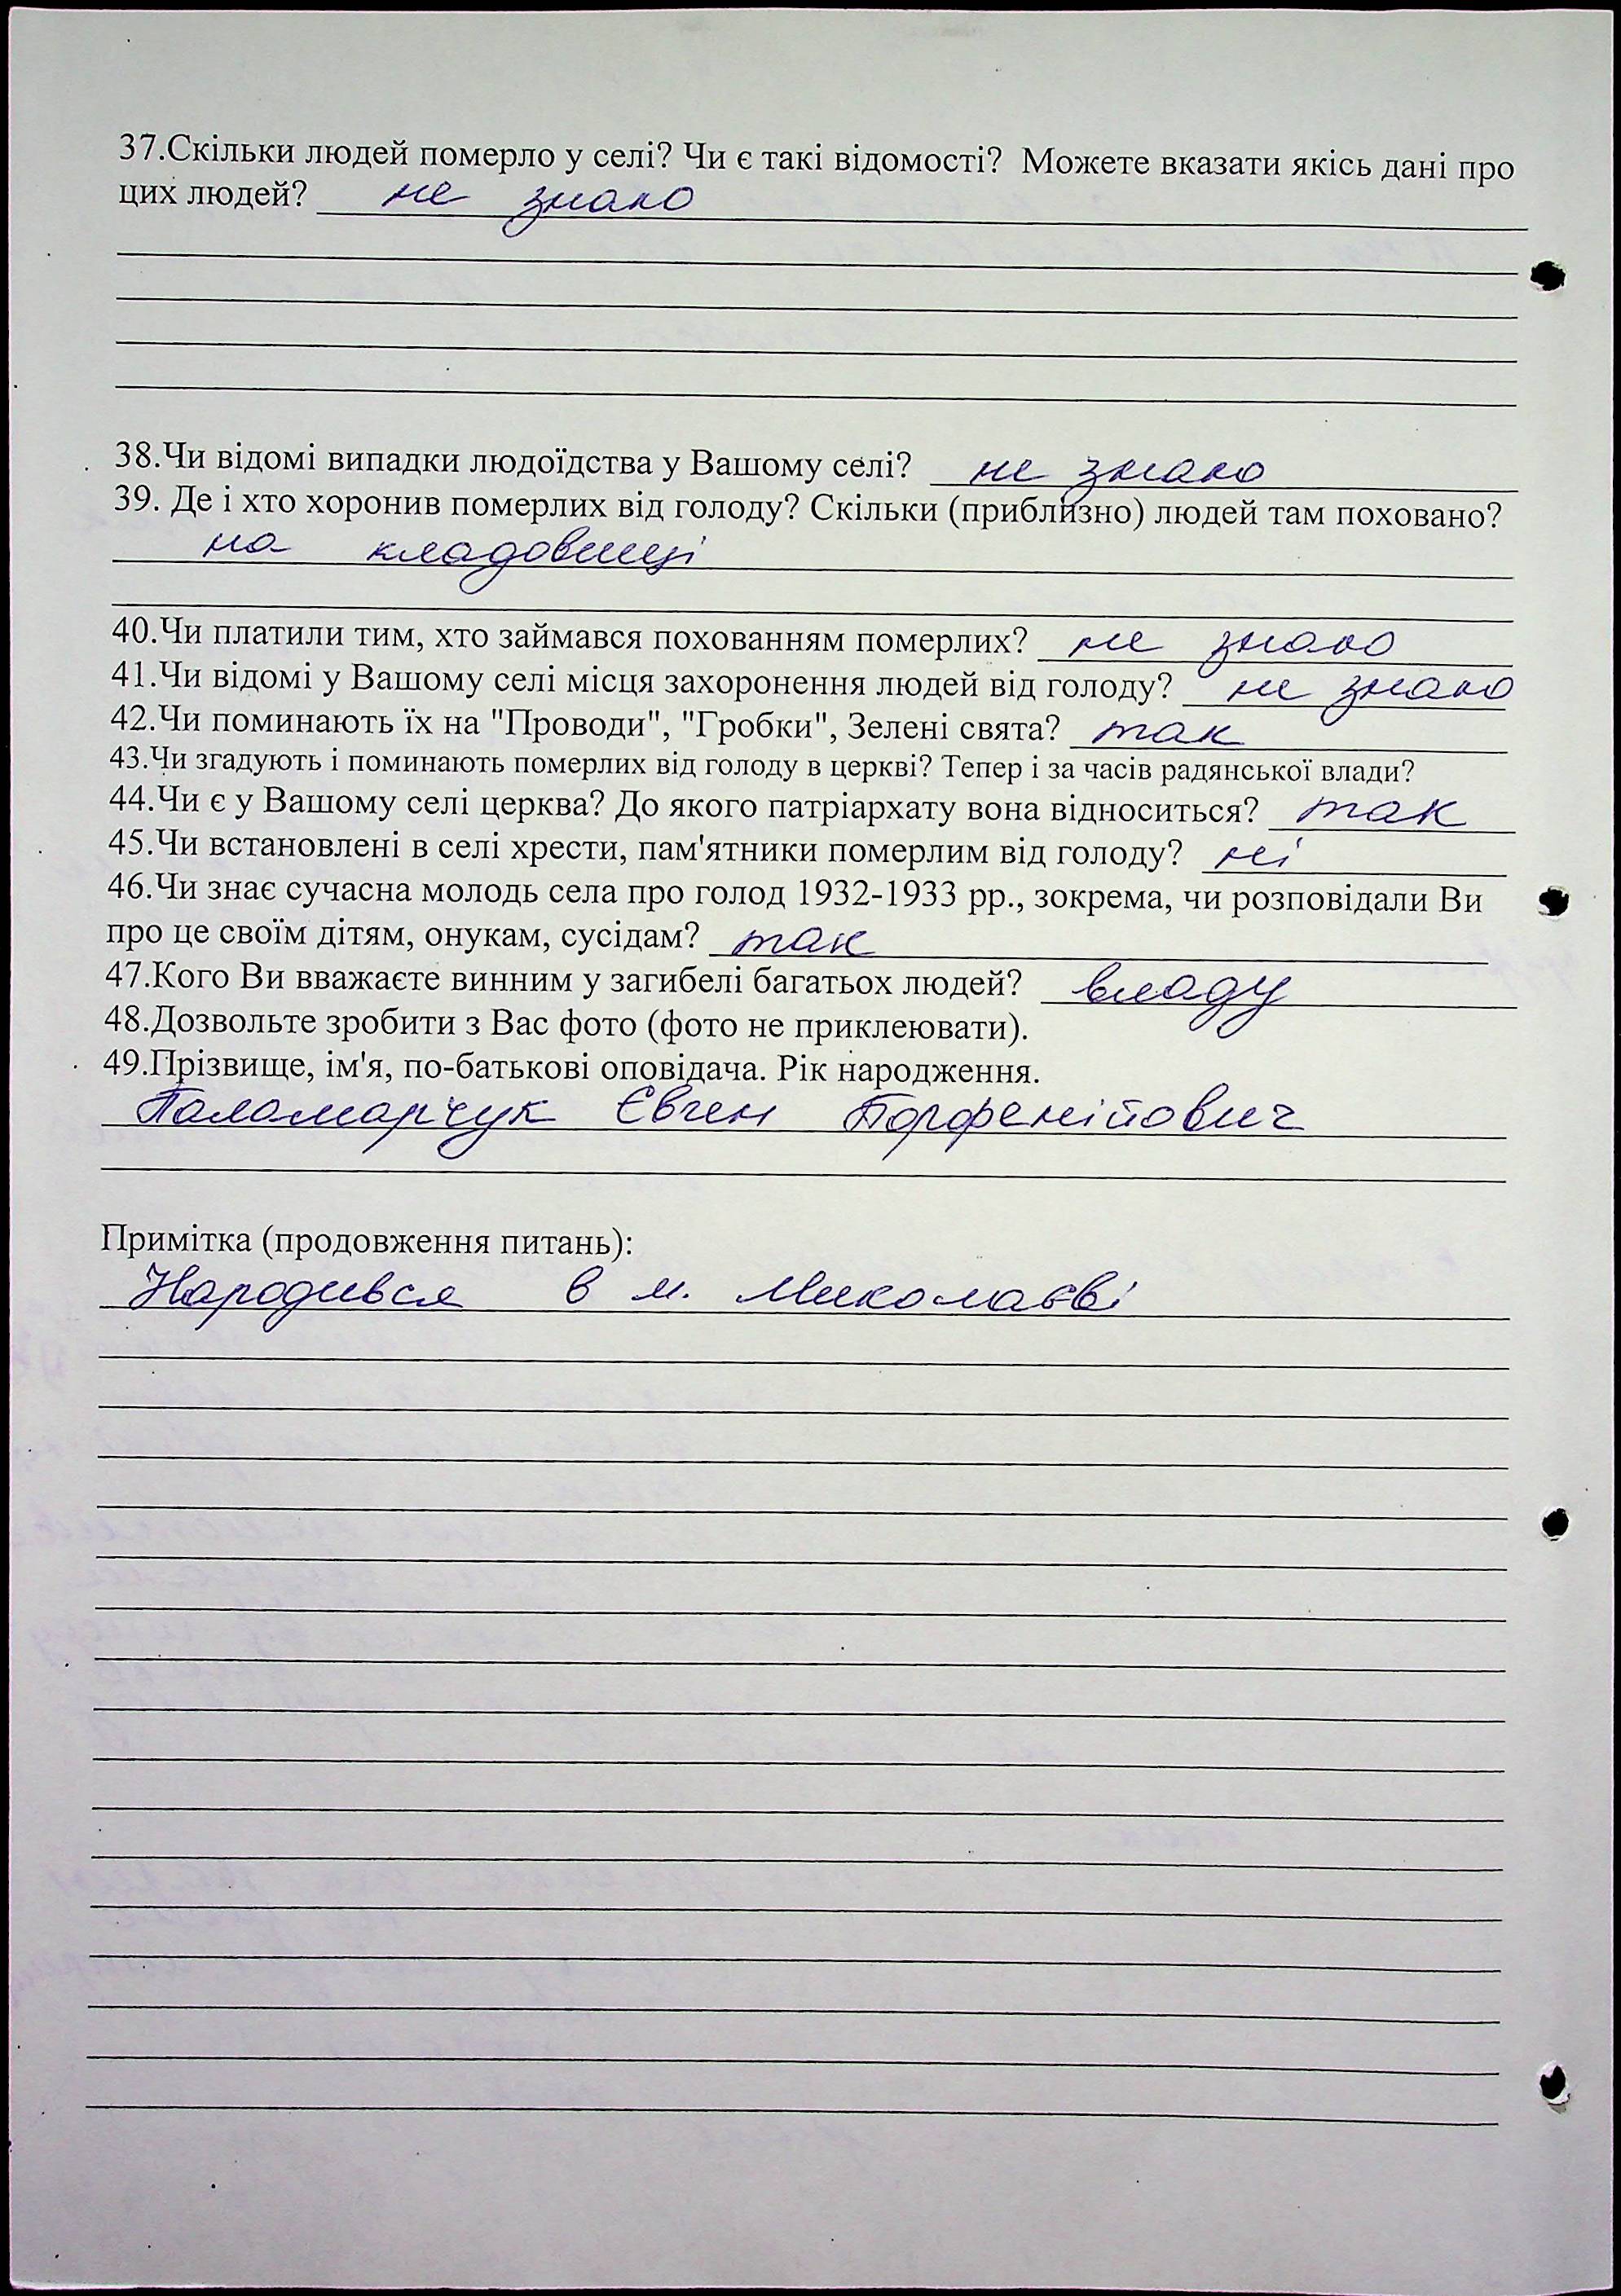 37.Скільки людей померло у селі? Чи є такі відомості? Можете вказати якісь дані про
цих людей? не знаю
38.Чи відомі випадки людоїдства у Вашому селі? не знаю
39. Де і хто хоронив померлих від голоду? Скільки (приблизно) людей там поховано?
на кладовищі
40.Чи платили тим, хто займався похованням померлих? не знаю
41.Чи відомі у Вашому селі місця захоронення людей від голоду? не знаю
42.Чи поминають їх на "Проводи", "Гробки", Зелені свята? так
43.Чи згадують і поминають померлих від голоду в церкві? Тепер і за часів радянської влади?
44.Чи є у Вашому селі церква? До якого патріархату вона відноситься? так
45.Чи встановлені в селі хрести, пам'ятники померлим від голоду? ні
46.Чи знає сучасна молодь села про голод 1932-1933 рр., зокрема, чи розповідали Ви
про це своїм дітям, онукам, сусідам? так
47.Кого Ви вважаєте винним у загибелі багатьох людей? владу
48.Дозвольте зробити з Вас фото (фото не приклеювати).
49.Прізвище, ім'я, по-батькові оповідача. Рік народження.
Паламарчук Євген Порфенійович
Примітка (продовження питань):
Народився в м. Миколаєві